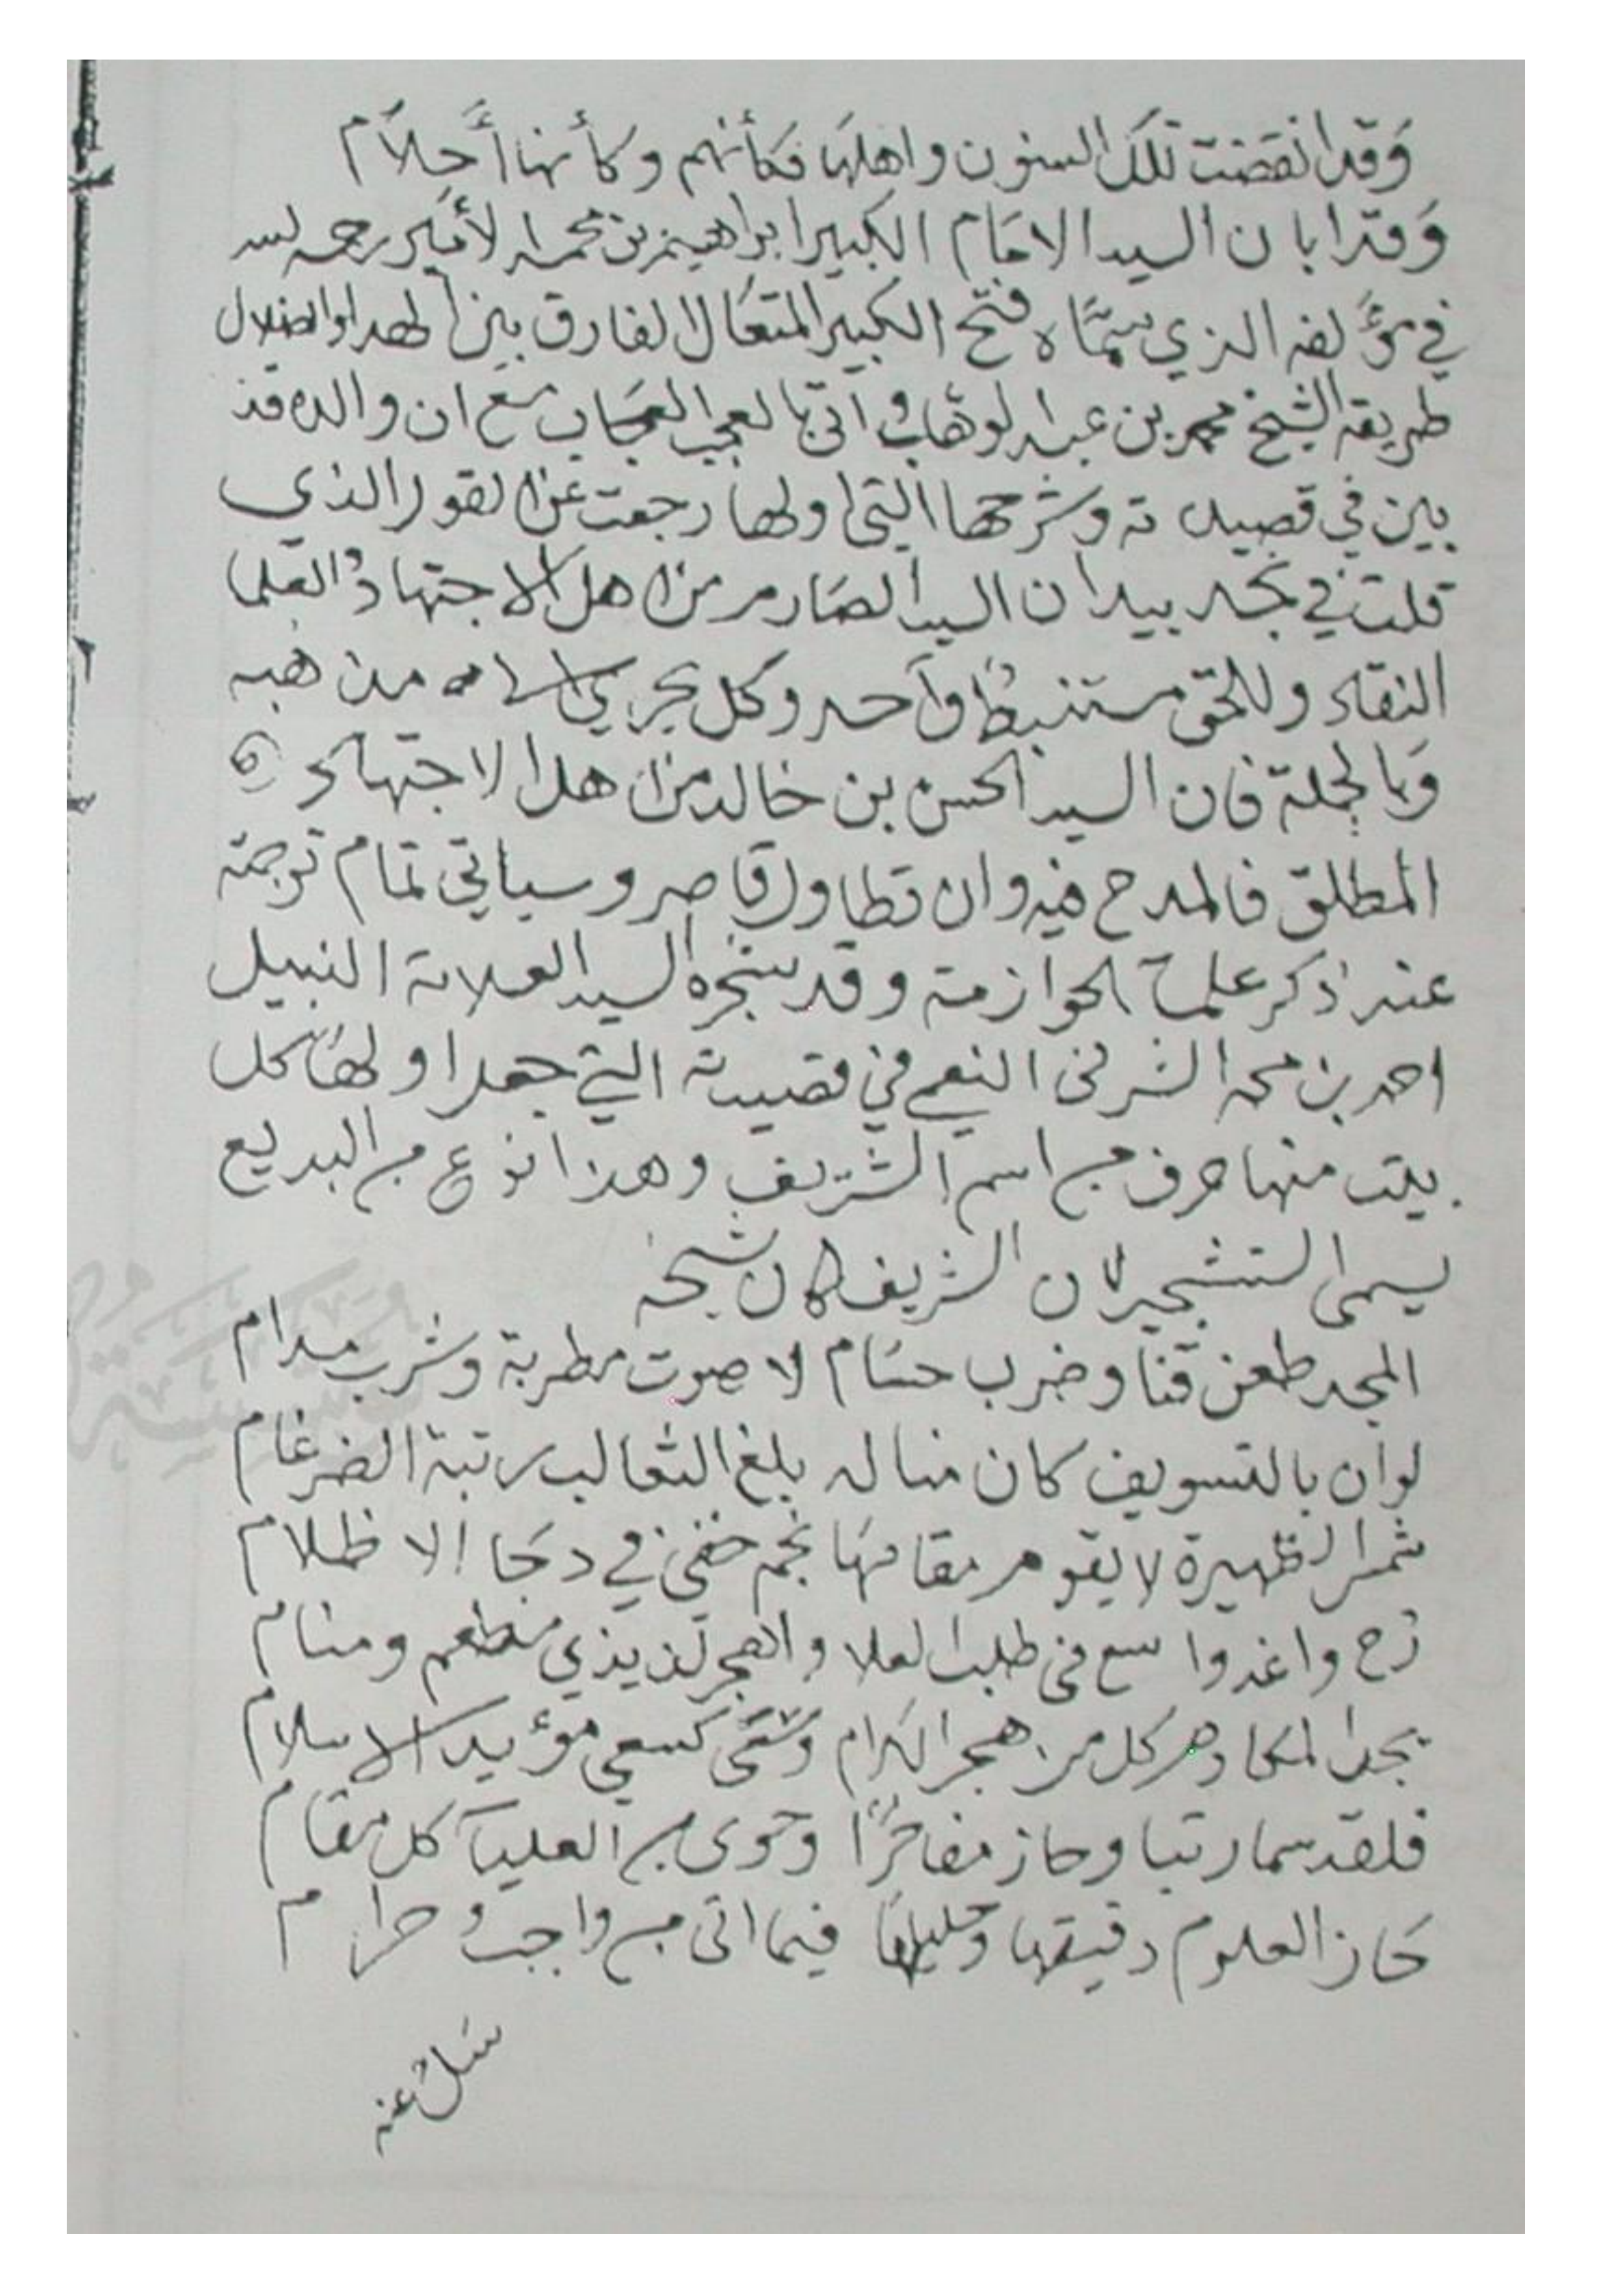 وَقد انقضت تلك السنون واهلها فكأنهم وكأنها أحلام
وَقد ابان السيد الامام الكبير ابراهيم بن محمد الأمير رحمه الله
في مؤلفه الذي سمّاه فتح الكبير المتعال الفارق بين الهدا والضلال
طريقه الشيخ محمد بن عبد الوهاب واتى بالعجب العجاب مع ان والده قد
بين في قصيدته وشرحها التي اولها رجعت عن القول الذي
قلت في نجد بيد ان السيد الصارم من اهل الاجتهاد والعلما
النقاد وللحق مستنبط واحد وكل يجري مذهبه
وبالجملة فان السيد الحسن بن خالد من اهل الاجتهاد
المطلق فالمدح فيه وان تطاول قاصر وسياتي تمام ترجمته
عند ذكر علمآ الحوازمة وقد شجره السيد العلامة النبيل
احمد بن محمد الشرفى النعمي في قصيدته التي جعل اولها كل
بيت منها حرف من اسم الشريف وهذا نوع من البديع
يسمى التشجير لان الشريف كان شيخه
المجد طعن قنا وضرب حسام لا صوت مطربة وشرب مدام
لو ان بالتسويف كان مناله بلغ الثعالب رتبة الضرغام
شمس الظهيرة لا يقوم مقامها نجم خفي في دجا الاظلام
رح واغدوا سع فى طلب العلا واهجر لذيذي مطعم ومنام
يجد المكارم كل من هجر الكرام وسعى كسعي مؤيد الاسلام
فلقد سما رتبا وحاز مفاخرًا وحوى من العليآ كل مقام
حاز العلوم دقيقها وجليلها فيما اتى من واجب وحرام
سل عنه